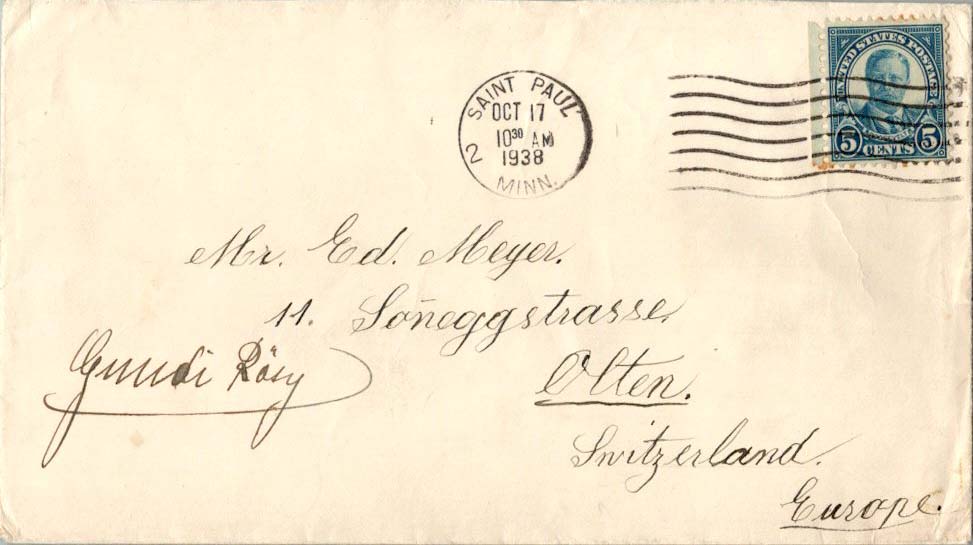 SAINT PAUL
OCT 17
10³⁰ AM
1938
2
MINN.
UNITED STATES POSTAGE
5 CENTS 5
Mr. Ed. Meyer.
11. Son̄eggstrasse.
Olten.
Switzerland.
Europe.
Gundi Rösy